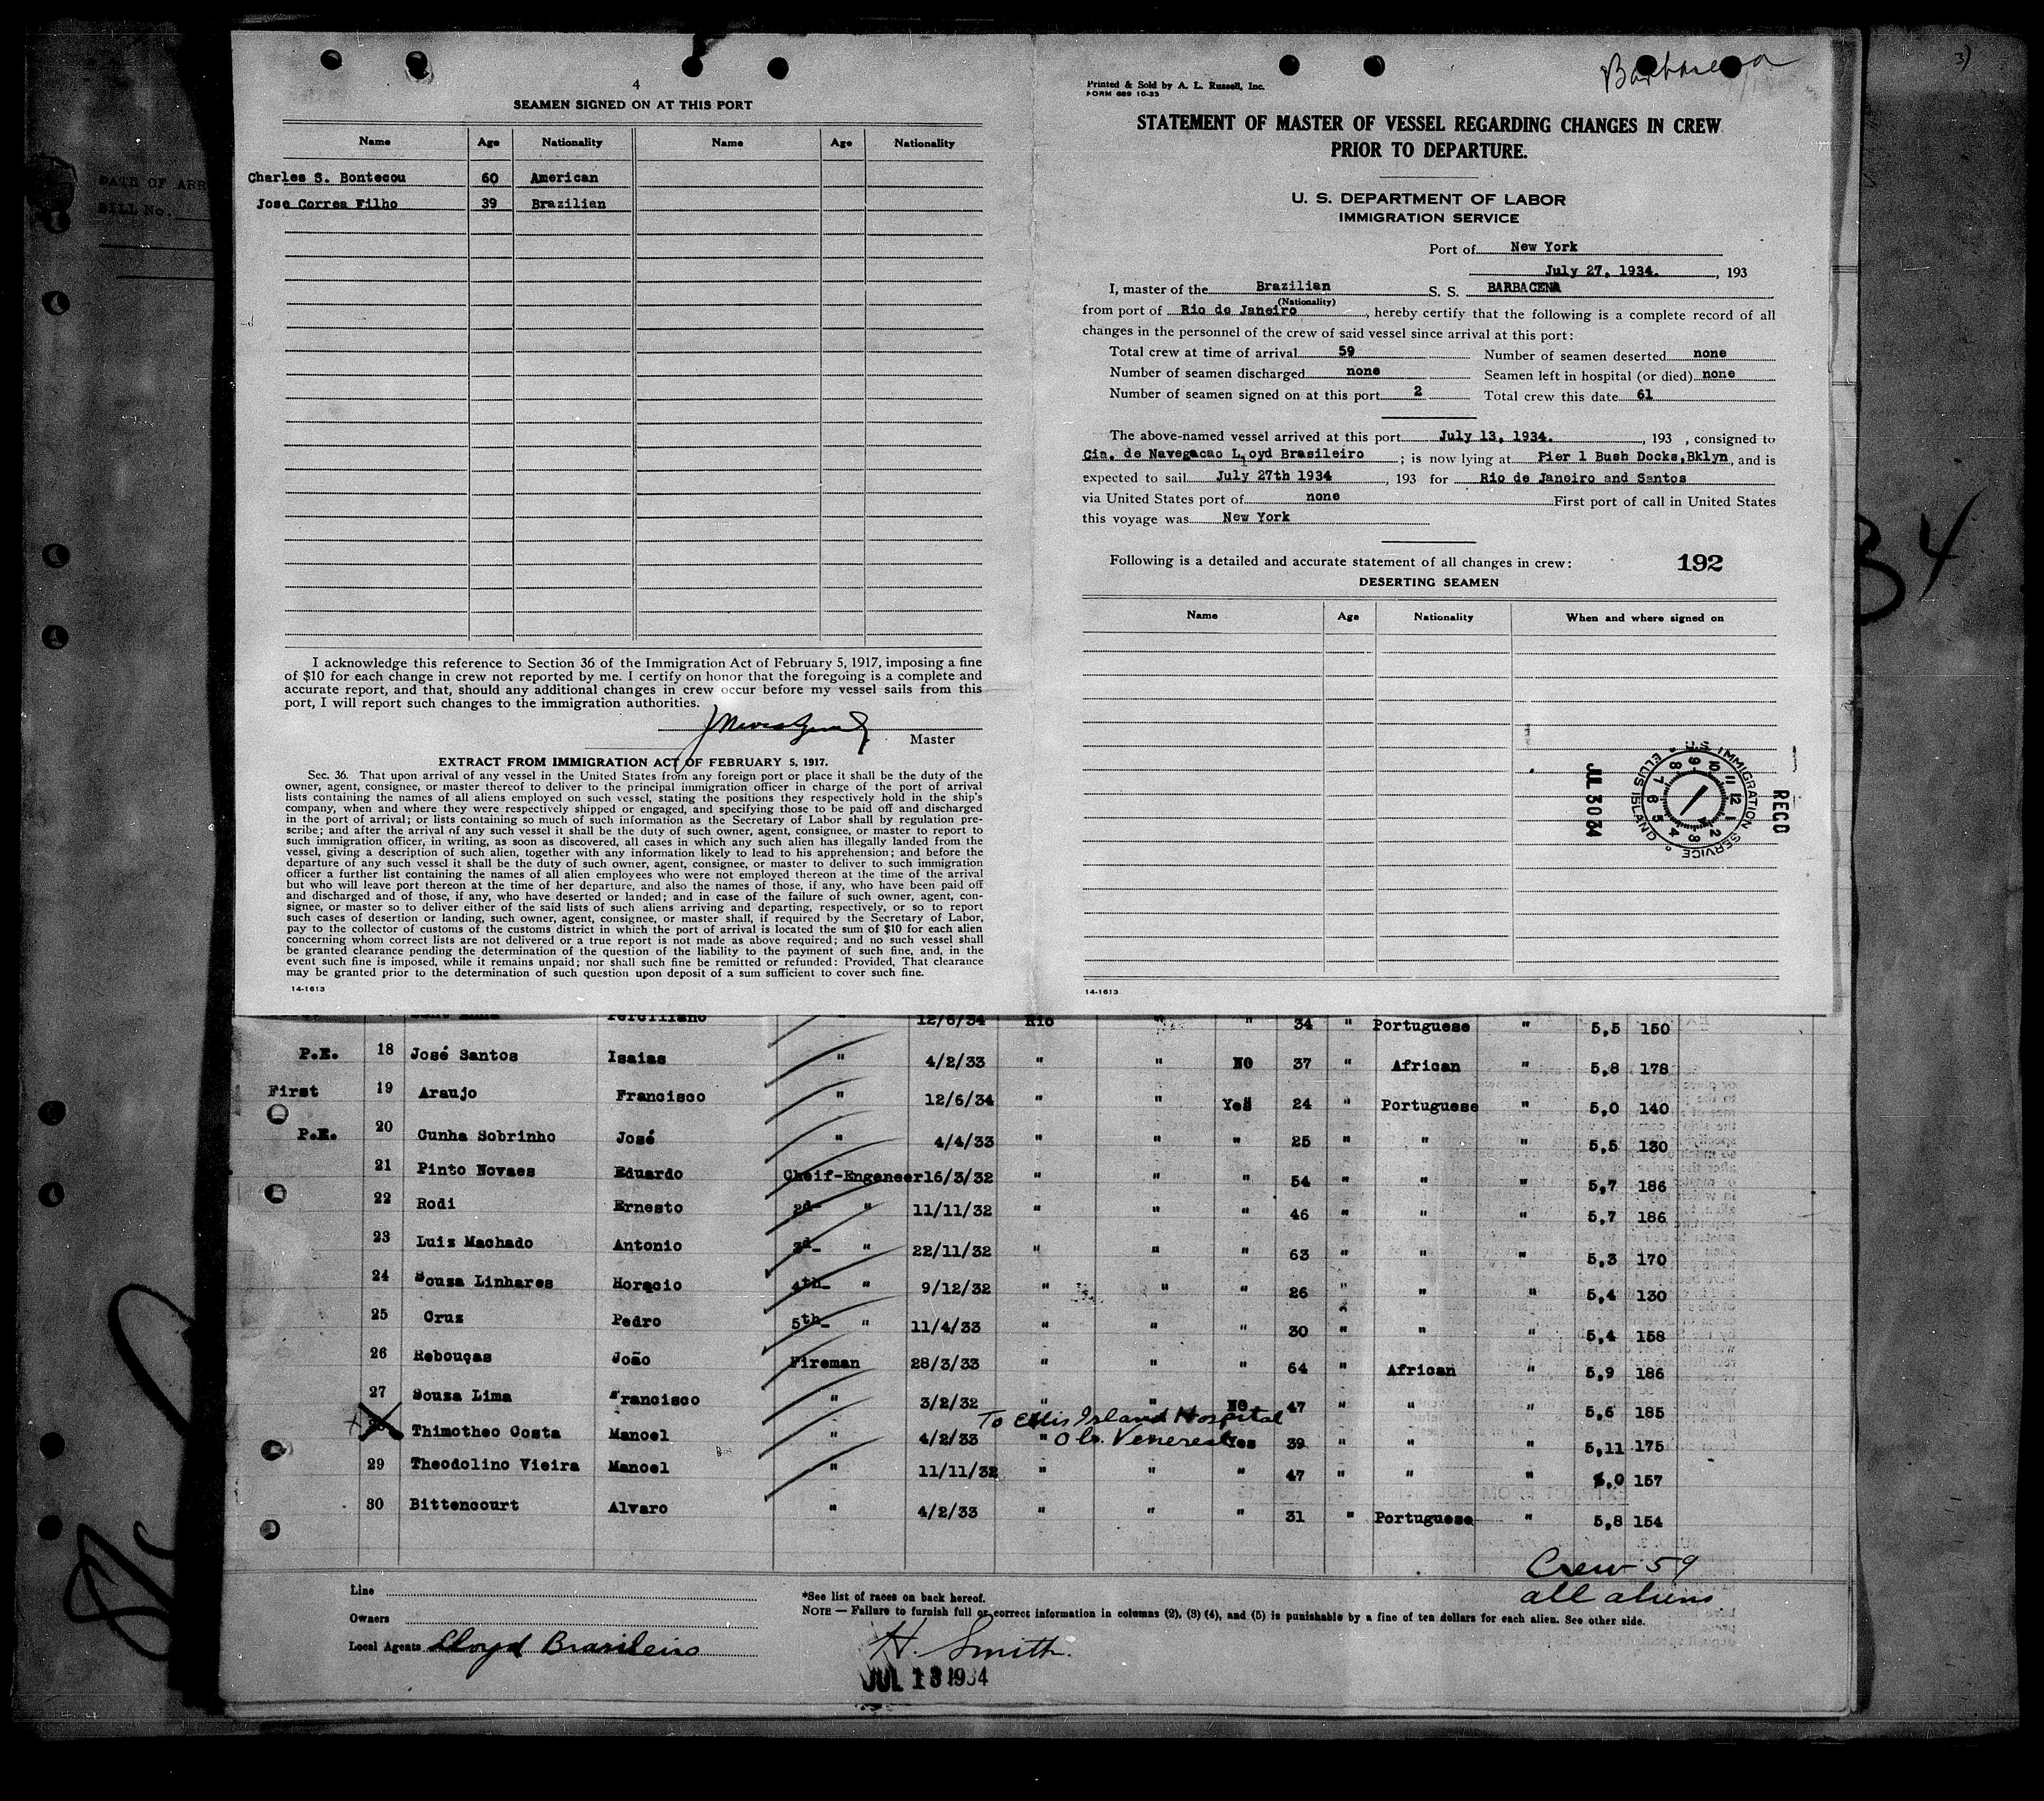 DATE OF ARR
BILL No.
4
SEAMEN SIGNED ON AT THIS PORT
Name Age Nationality Name Age Nationality
Charles S. Bontecou 60 American
Jose Correa Filho 39 Brazilian
I acknowledge this reference to Section 36 of the Immigration Act of February 5, 1917, imposing a fine
of $10 for each change in crew not reported by me. I certify on honor that the foregoing is a complete and
accurate report, and that, should any additional changes in crew occur before my vessel sails from this
port, I will report such changes to the immigration authorities.
Master
EXTRACT FROM IMMIGRATION ACT OF FEBRUARY 5, 1917.
Sec. 36. That upon arrival of any vessel in the United States from any foreign port or place it shall be the duty of the
owner, agent, consignee, or master thereof to deliver to the principal immigration officer in charge of the port of arrival
lists containing the names of all aliens employed on such vessel, stating the positions they respectively hold in the ship's
company, when and where they were respectively shipped or engaged, and specifying those to be paid off and discharged
in the port of arrival; or lists containing so much of such information as the Secretary of Labor shall by regulation pre-
scribe; and after the arrival of any such vessel it shall be the duty of such owner, agent, consignee, or master to report to
such immigration officer, in writing, as soon as discovered, all cases in which any such alien has illegally landed from the
vessel, giving a description of such alien, together with any information likely to lead to his apprehension; and before the
departure of any such vessel it shall be the duty of such owner, agent, consignee, or master to deliver to such immigration
officer a further list containing the names of all alien employees who were not employed thereon at the time of the arrival
but who will leave port thereon at the time of her departure, and also the names of those, if any, who have been paid off
and discharged and of those, if any, who have deserted or landed; and in case of the failure of such owner, agent, con-
signee, or master so to deliver either of the said lists of such aliens arriving and departing, respectively, or so to report
such cases of desertion or landing, such owner, agent, consignee, or master shall, if required by the Secretary of Labor,
pay to the collector of customs of the customs district in which the port of arrival is located the sum of $10 for each alien
concerning whom correct lists are not delivered or a true report is not made as above required; and no such vessel shall
be granted clearance pending the determination of the question of the liability to the payment of such fine, and, in the
event such fine is imposed, while it remains unpaid; nor shall such fine be remitted or refunded: Provided, That clearance
may be granted prior to the determination of such question upon deposit of a sum sufficient to cover such fine.
14-1613
Barbacena
Printed & Sold by A. L. Russell, Inc.
FORM 689 10-33
STATEMENT OF MASTER OF VESSEL REGARDING CHANGES IN CREW
PRIOR TO DEPARTURE.
U. S. DEPARTMENT OF LABOR
IMMIGRATION SERVICE
Port of New York
July 27, 1934. , 193
I, master of the Brazilian S. S. BARBACENA
(Nationality)
from port of Rio de Janeiro, hereby certify that the following is a complete record of all
changes in the personnel of the crew of said vessel since arrival at this port:
Total crew at time of arrival 59 Number of seamen deserted none
Number of seamen discharged none Seamen left in hospital (or died) none
Number of seamen signed on at this port 2 Total crew this date 61
The above-named vessel arrived at this port July 13, 1934. , 193 , consigned to
Cia. de Navegacao Lloyd Brasileiro ; is now lying at Pier 1 Bush Docks,Bklyn, and is
expected to sail July 27th 1934 , 193 for Rio de Janeiro and Santos
via United States port of none First port of call in United States
this voyage was New York
Following is a detailed and accurate statement of all changes in crew: 192
DESERTING SEAMEN
Name Age Nationality When and where signed on
RECD
U.S. IMMIGRATION SERVICE ELLIS ISLAND
JUL 30 34
14-1613
34
12/6/34 Rio " " 34 " Portuguese " 5,5 150
P.E. 18 José Santos Isaias " 4/2/33 " " NO 37 " African " 5,8 178
First 19 Araujo Francisco " 12/6/34 " " Yes 24 " Portuguese " 5,0 140
P.E. 20 Cunha Sobrinho José " 4/4/33 " " " 25 " " " 5,5 130
21 Pinto Novaes Eduardo Cheif-Engeneer 16/3/32 " " " 54 " " " 5,7 186
22 Rodi Ernesto 2d- " 11/11/32 " " " 46 " " " 5,7 186
23 Luiz Machado Antonio 3d- " 22/11/32 " " " 63 " " " 5,3 170
24 Souza Linhares Horacio 4th- " 9/12/32 " " " 26 " " " 5,4 130
25 Cruz Pedro 5th- " 11/4/33 " " " 30 " " " 5,4 158
26 Rebouças João Fireman 28/3/33 " " " 64 " African " 5,9 186
27 Souza Lima Francisco " 3/2/32 " " NO 47 " " " 5,6 185
To Ellis Island Hospital
Thimotheo Costa Manoel " 4/2/33 " Venereal Yes 39 " " " 5,11 175
29 Theodolino Vieira Manoel " 11/11/32 " " " 47 " " " 6,0 157
30 Bittencourt Alvaro " 4/2/33 " " " 31 " Portuguese " 5,8 154
Crew 59
all aliens
Line
Owners
Local Agents Lloyd Brasileiro
*See list of races on back hereof.
NOTE — Failure to furnish full or correct information in columns (2), (3) (4), and (5) is punishable by a fine of ten dollars for each alien. See other side.
H. Smith.
JUL 13 1934